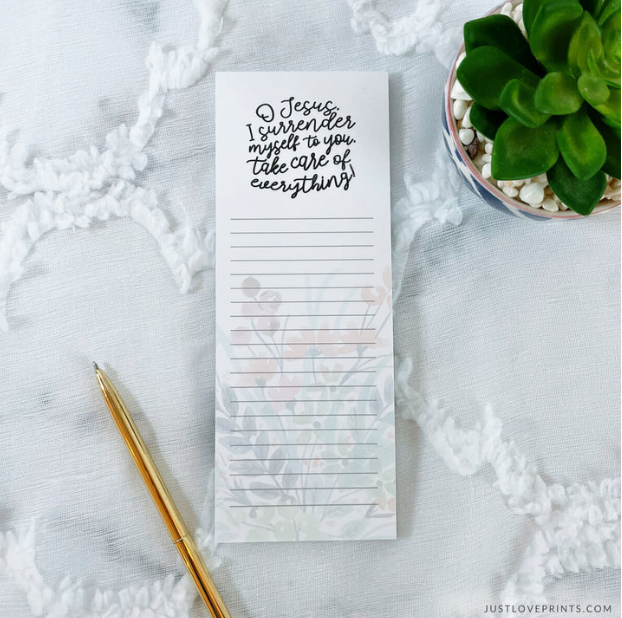 O Jesus,
I surrender
myself to you.
take care of
everything!
JUSTLOVEPRINTS.COM